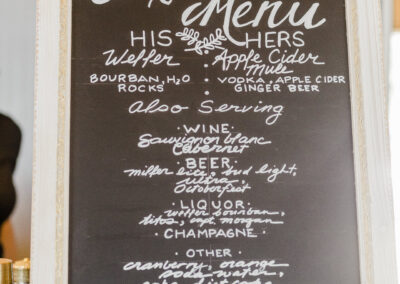 Menu
HIS HERS
Weffer • Apple Cider Mule
BOURBAN, H2O • VODKA, APPLE CIDER
ROCKS • GINGER BEER
Also Serving
• WINE •
Sauvignon blanc
Cabernet
• BEER •
miller lite, bud light,
ultra,
Octoberfest
• LIQUOR •
weffer bourban,
titos, capt. morgan
• CHAMPAGNE •
• OTHER •
cranberry, orange
soda water,
coke, diet coke